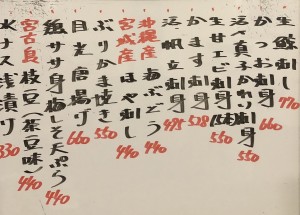 生鯵刺し 770
かつお刺身 660
活〆真子かれい刺身 550
生甘エビ刺身 550
かます刺身 528
活帆立刺身 495
沖縄産 海ぶどう 440
宮城産 ほや刺し 440
ぶりかま焼き 550
目光唐揚げ 660
鶏ササ身梅しそ天ぷら 440
宮古島 枝豆(茶豆味) 440
水ナス浅漬け 330